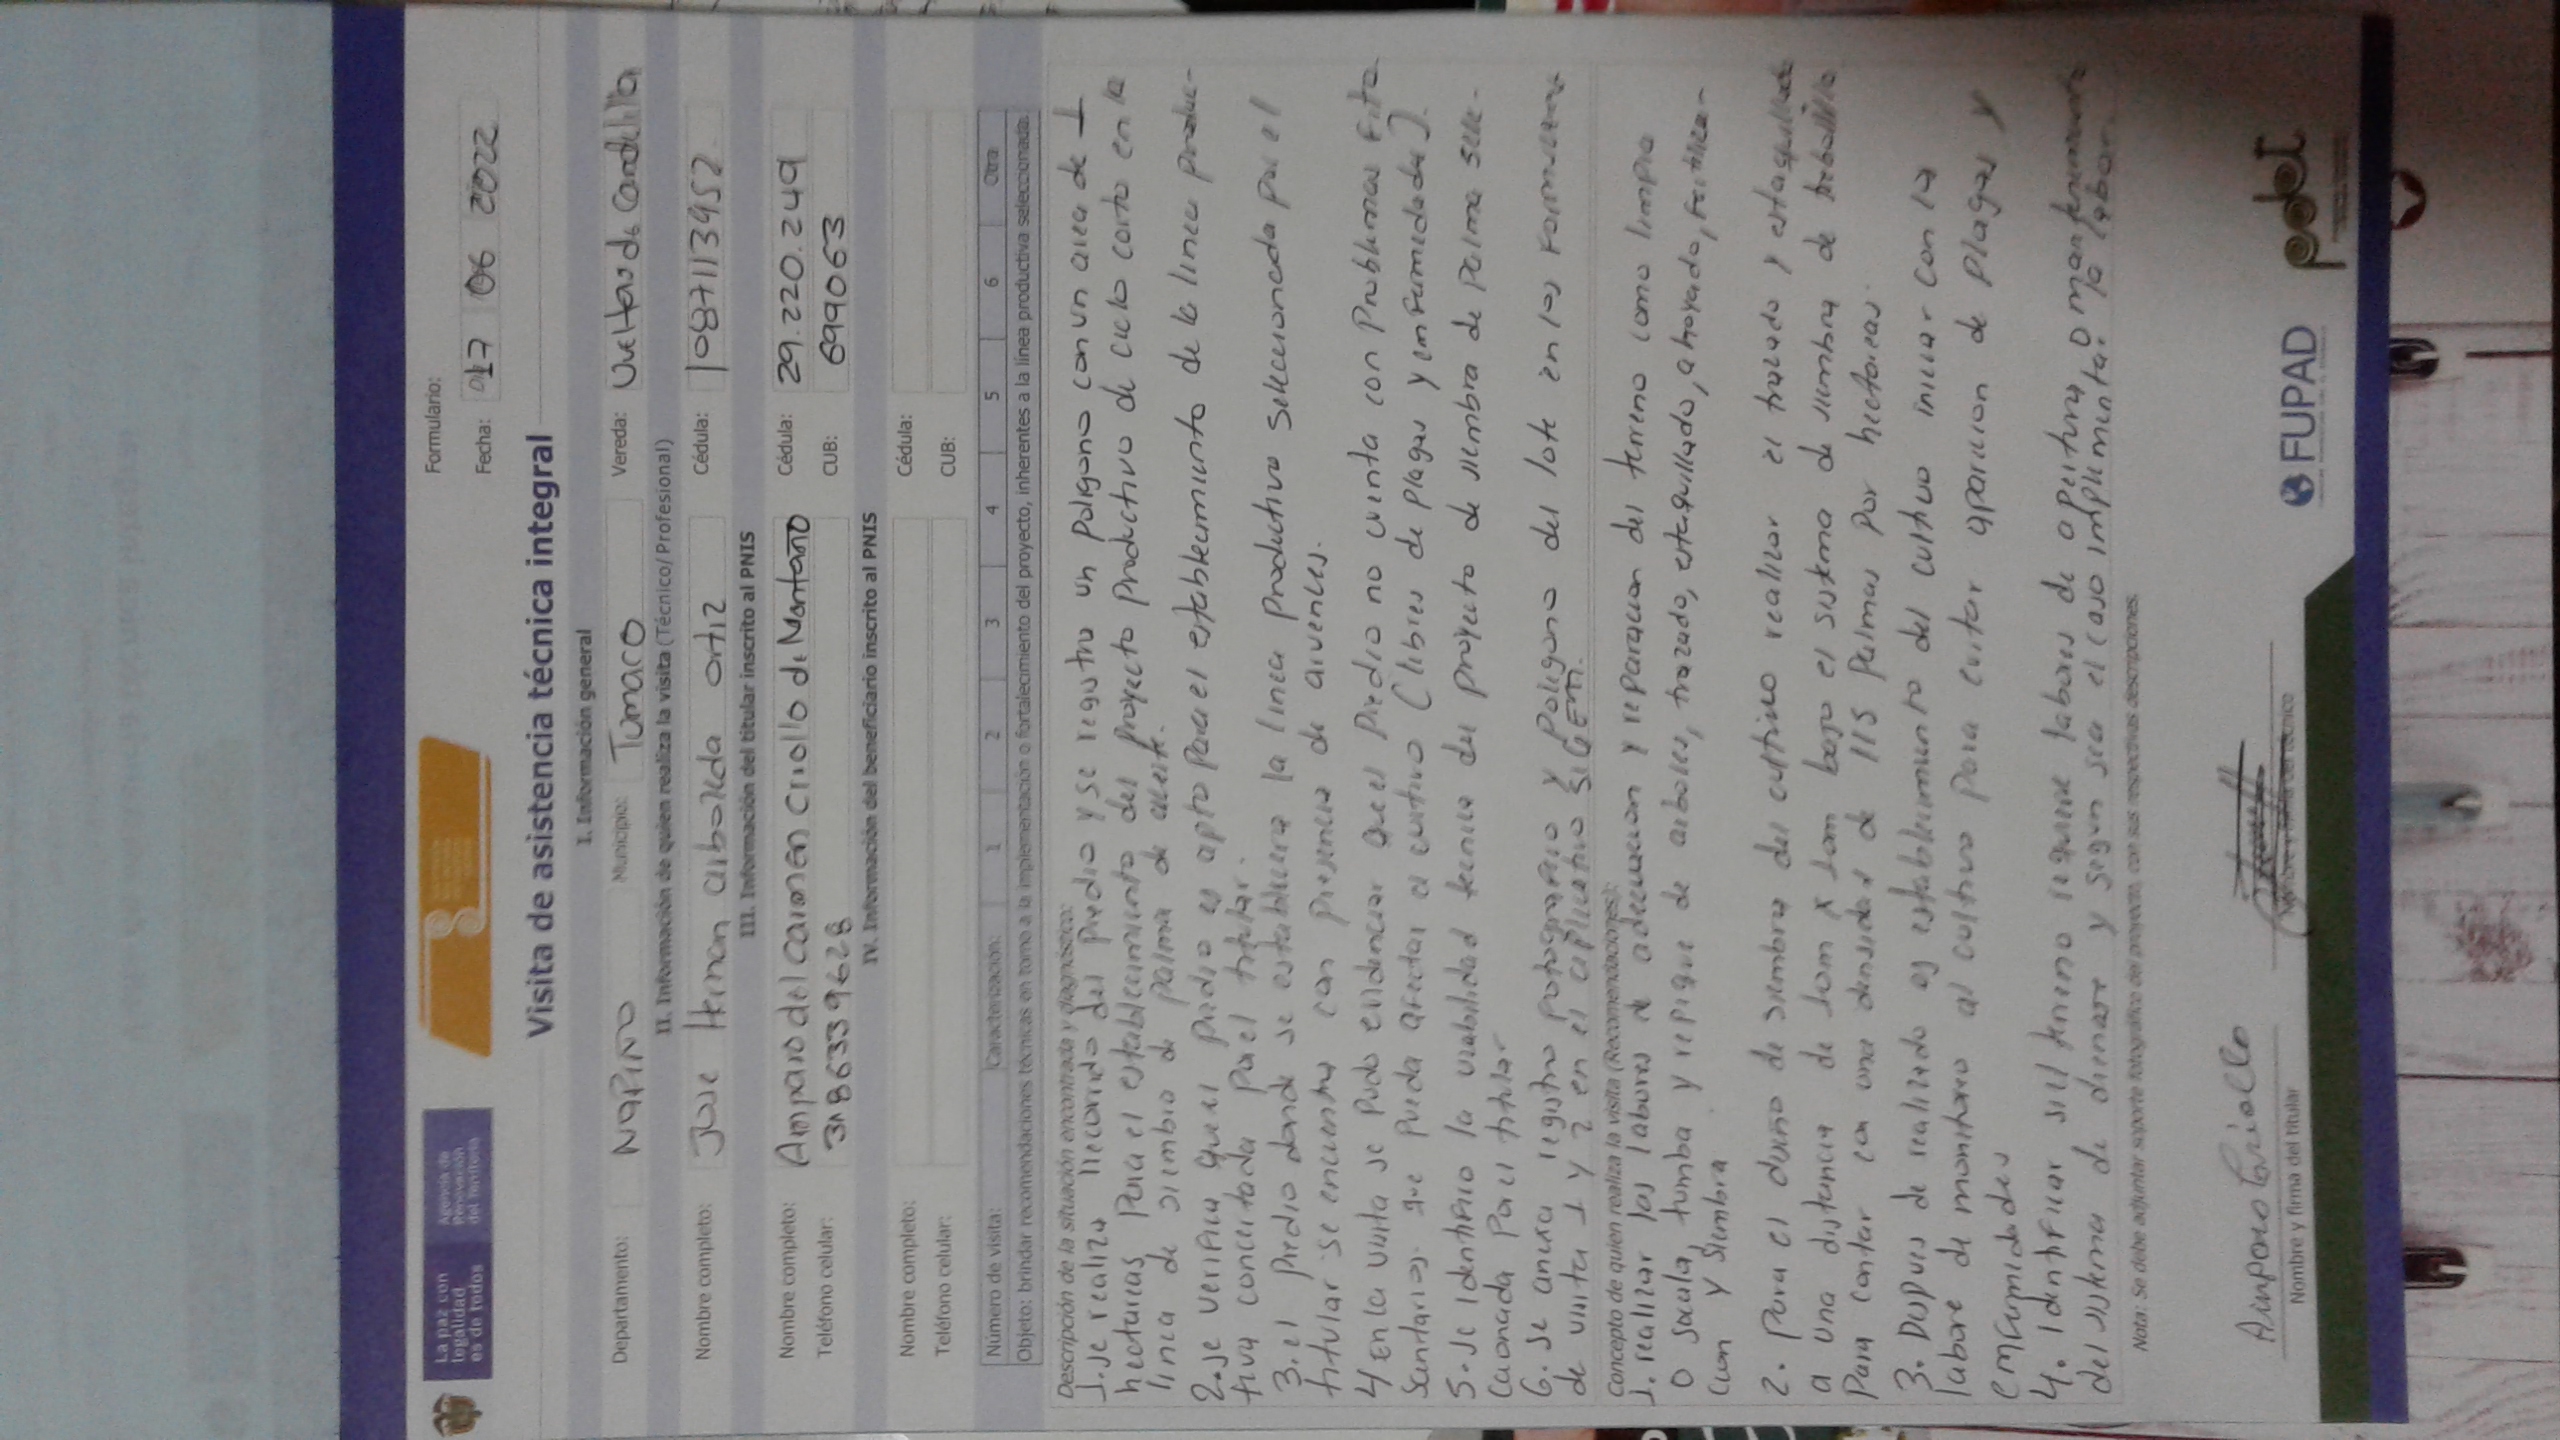 La paz con
legalidad
es de todos
Agencia de
Renovación
del Territorio
Formulario:
Fecha: 017 06 2022
Visita de asistencia técnica integral
I. Información general
Departamento: NARIÑO Municipio: Tumaco Vereda: Vueltas de Candelilla
II. Información de quien realiza la visita (Técnico/Profesional)
Nombre completo: Jose Hernan Ortiz Cédula: 1087113952
III. Información del titular inscrito al PNIS
Nombre completo: Amparo del carmen Criollo de Montaño Cédula: 29.220.249
Teléfono celular: 3186339628 CUB: 6999063
IV. Información del beneficiario inscrito al PNIS
Nombre completo: Cédula:
Teléfono celular: CUB:
Número de visita: Caracterización: 1 2 3 4 5 6 Otra
Objeto: brindar recomendaciones técnicas en torno a la implementación o fortalecimiento del proyecto, inherentes a la línea productiva seleccionada.
Descripción de la situación encontrada y diagnóstico:
1. se realiza recorrido del predio y se registra un poligono con un area de 1
hectareas para el establecimiento del proyecto productivo de ciclo corto en la
linea de siembra de palma de aceite.
2. se verifica que el predio es apto para el establecimiento de la linea produc-
tiva concertada por el titular.
3. el predio donde se establecera la linea productiva seleccionada por el
titular se encuentra con presencia de arvences.
4 En la visita se pudo evidenciar que el predio no cuenta con problemas fito
sanitarios que pueda afectar el cultivo (libres de plagas y enfermedades).
5. se identifico la viabilidad tecnica del proyecto de siembra de palma sele-
ccionada por el titular
6. se anexa registro fotografico y poligono del lote en los formatos
de visita 1 y 2 en el aplicativo SIGEM.
Concepto de quien realiza la visita (Recomendaciones):
1. realizar las labores de adecuacion y reparacion del terreno como limpia
o socala, tumba y repique de arboles, trazado, estaquillado, ahoyado, fertiliza-
cion y siembra
2. para el diseño de siembra del cultivo realizar el trazado y estaquillado
a una distancia de 10m x 10m bajo el sistema de siembra de trebolillo
para contar con una densidad de 115 palmas por hectareas.
3. Despues de realizado es establecimiento del cultivo iniciar con la
labore de monitoreo al cultivo para evitar aparicion de plagas y
enfermedades
4. Identificar si el terreno requiere labores de apertura o mantenimiento
del sistema de drenare y segun sea el caso implementar la labor.
Nota: Se debe adjuntar soporte fotográfico del proyecto, con sus respectivas descripciones.
Amparo Criollo
Nombre y firma del titular
Nombre y firma del técnico
FUPAD
pdet